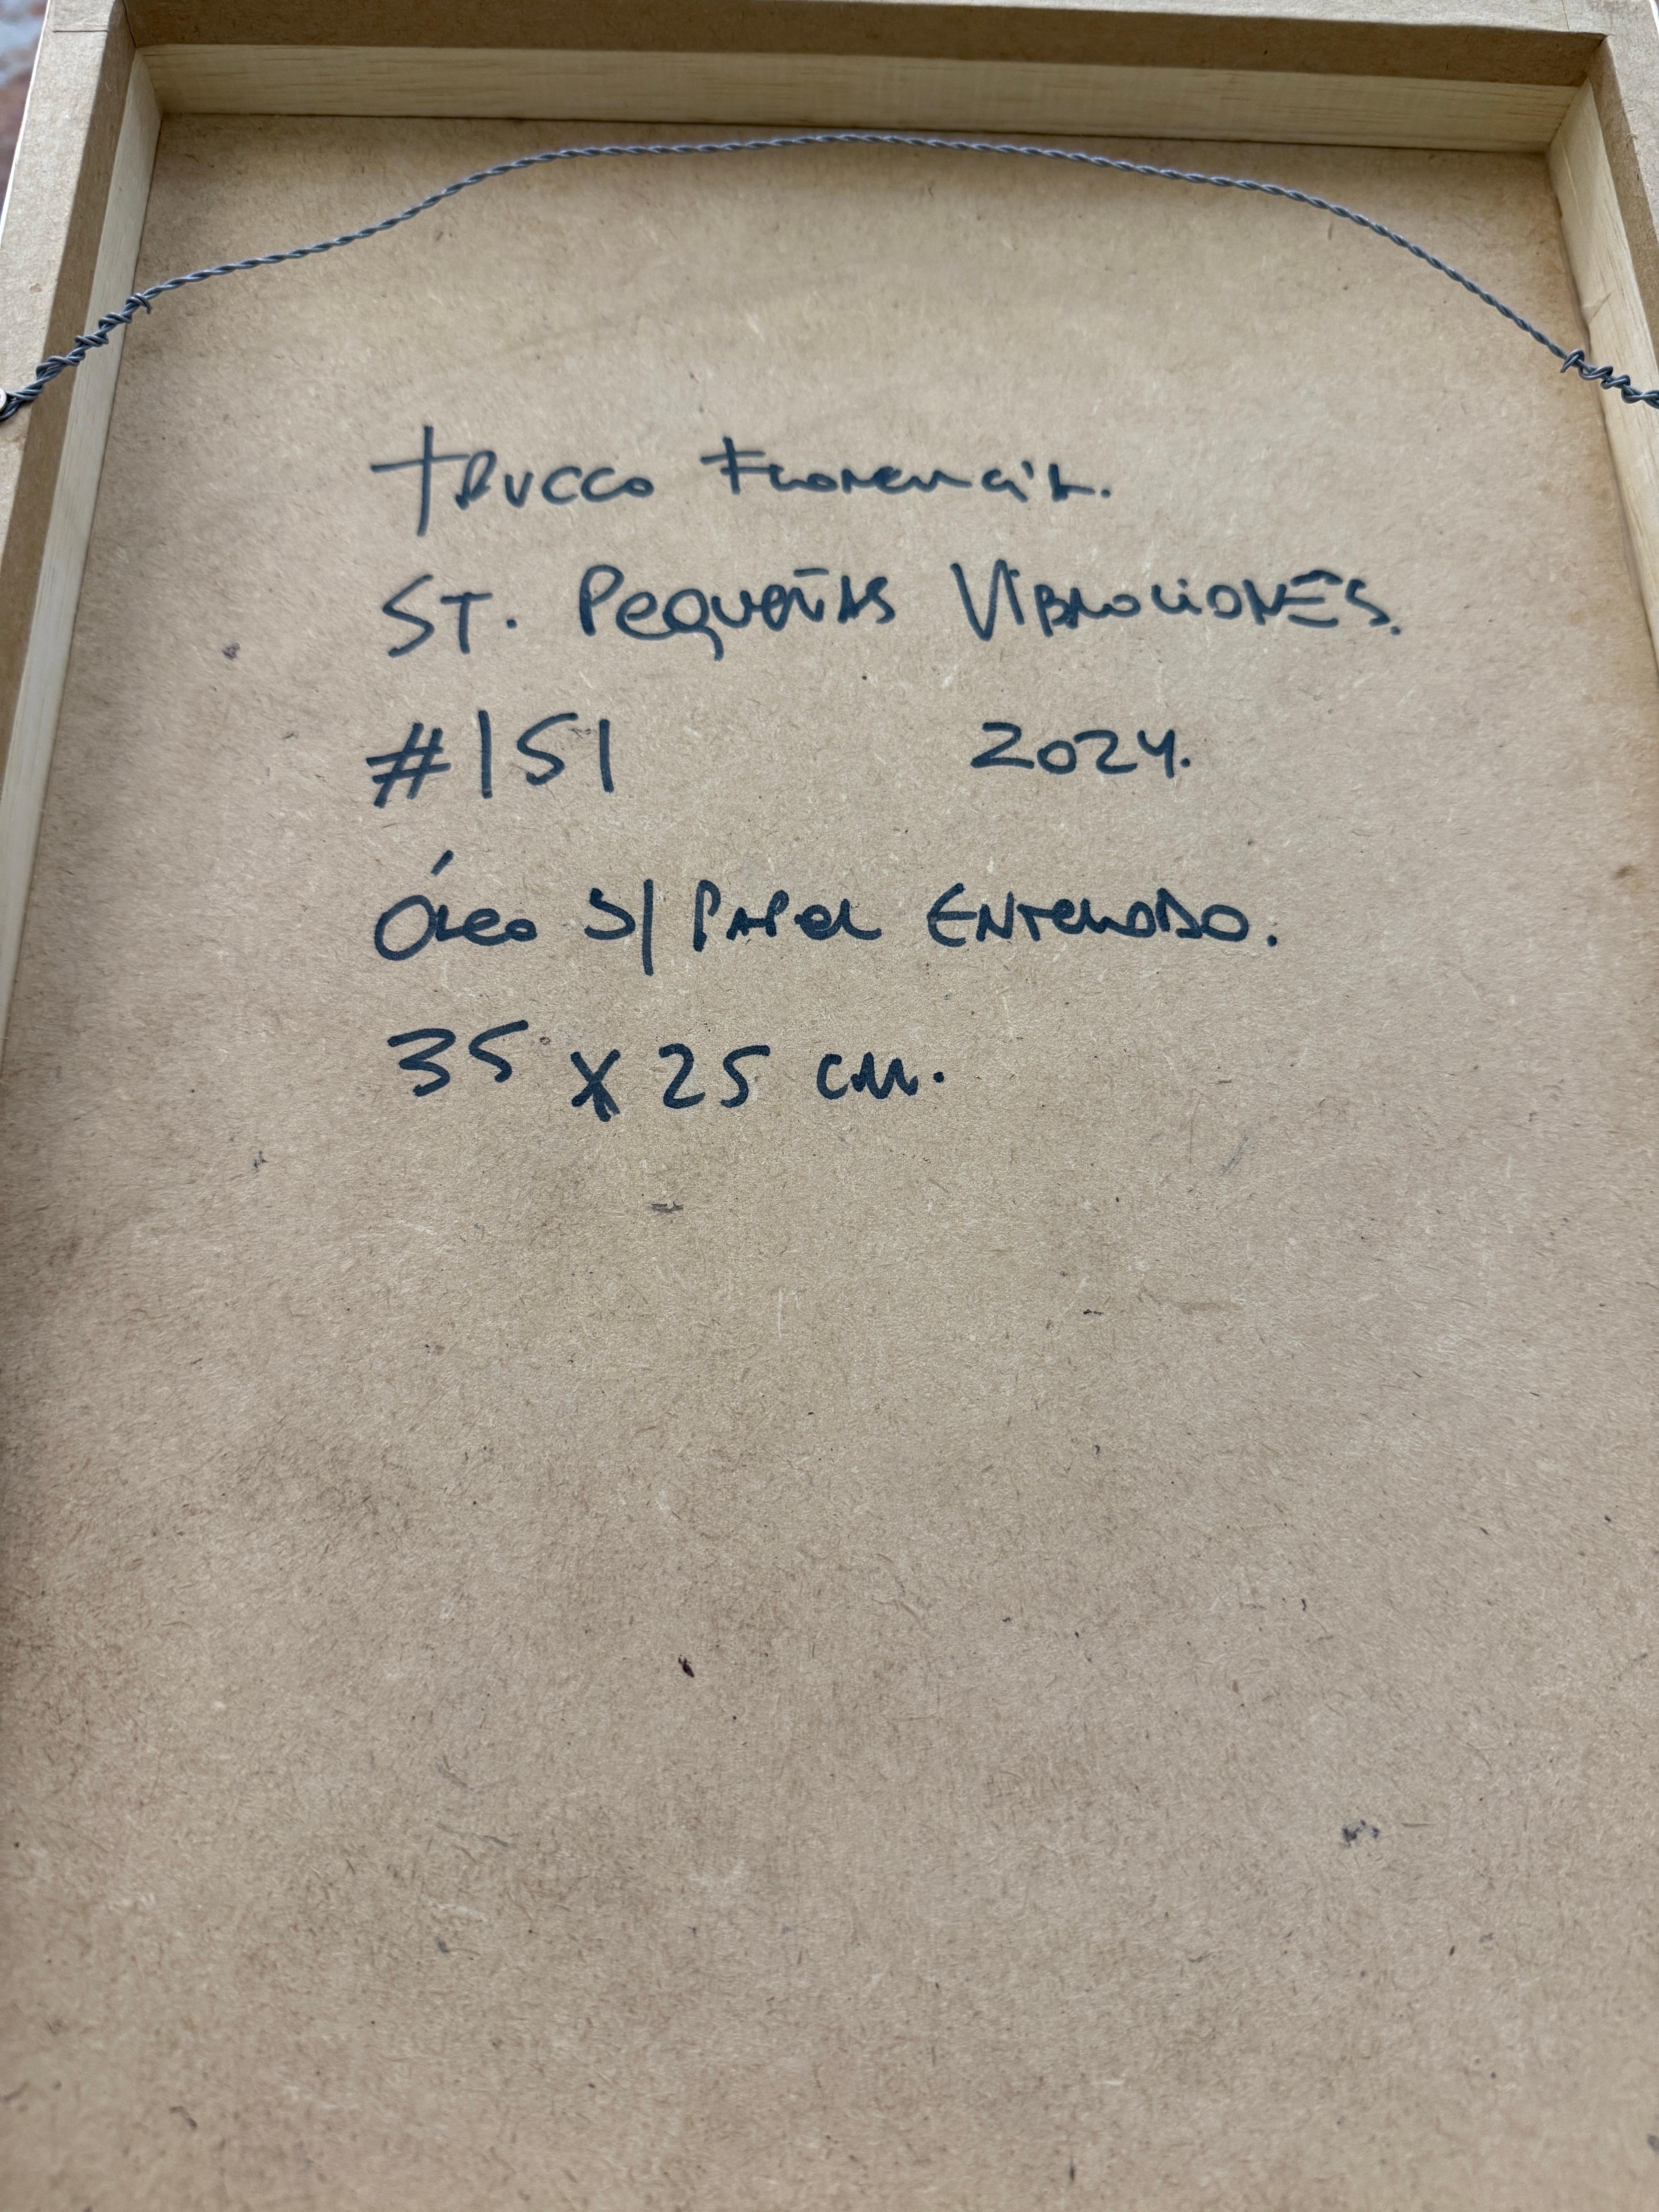 Trucco Florencia.
ST. Pequeñas Vibraciones.
#151 2024.
Óleo S/ Papel Entelado.
35 x 25 cm.